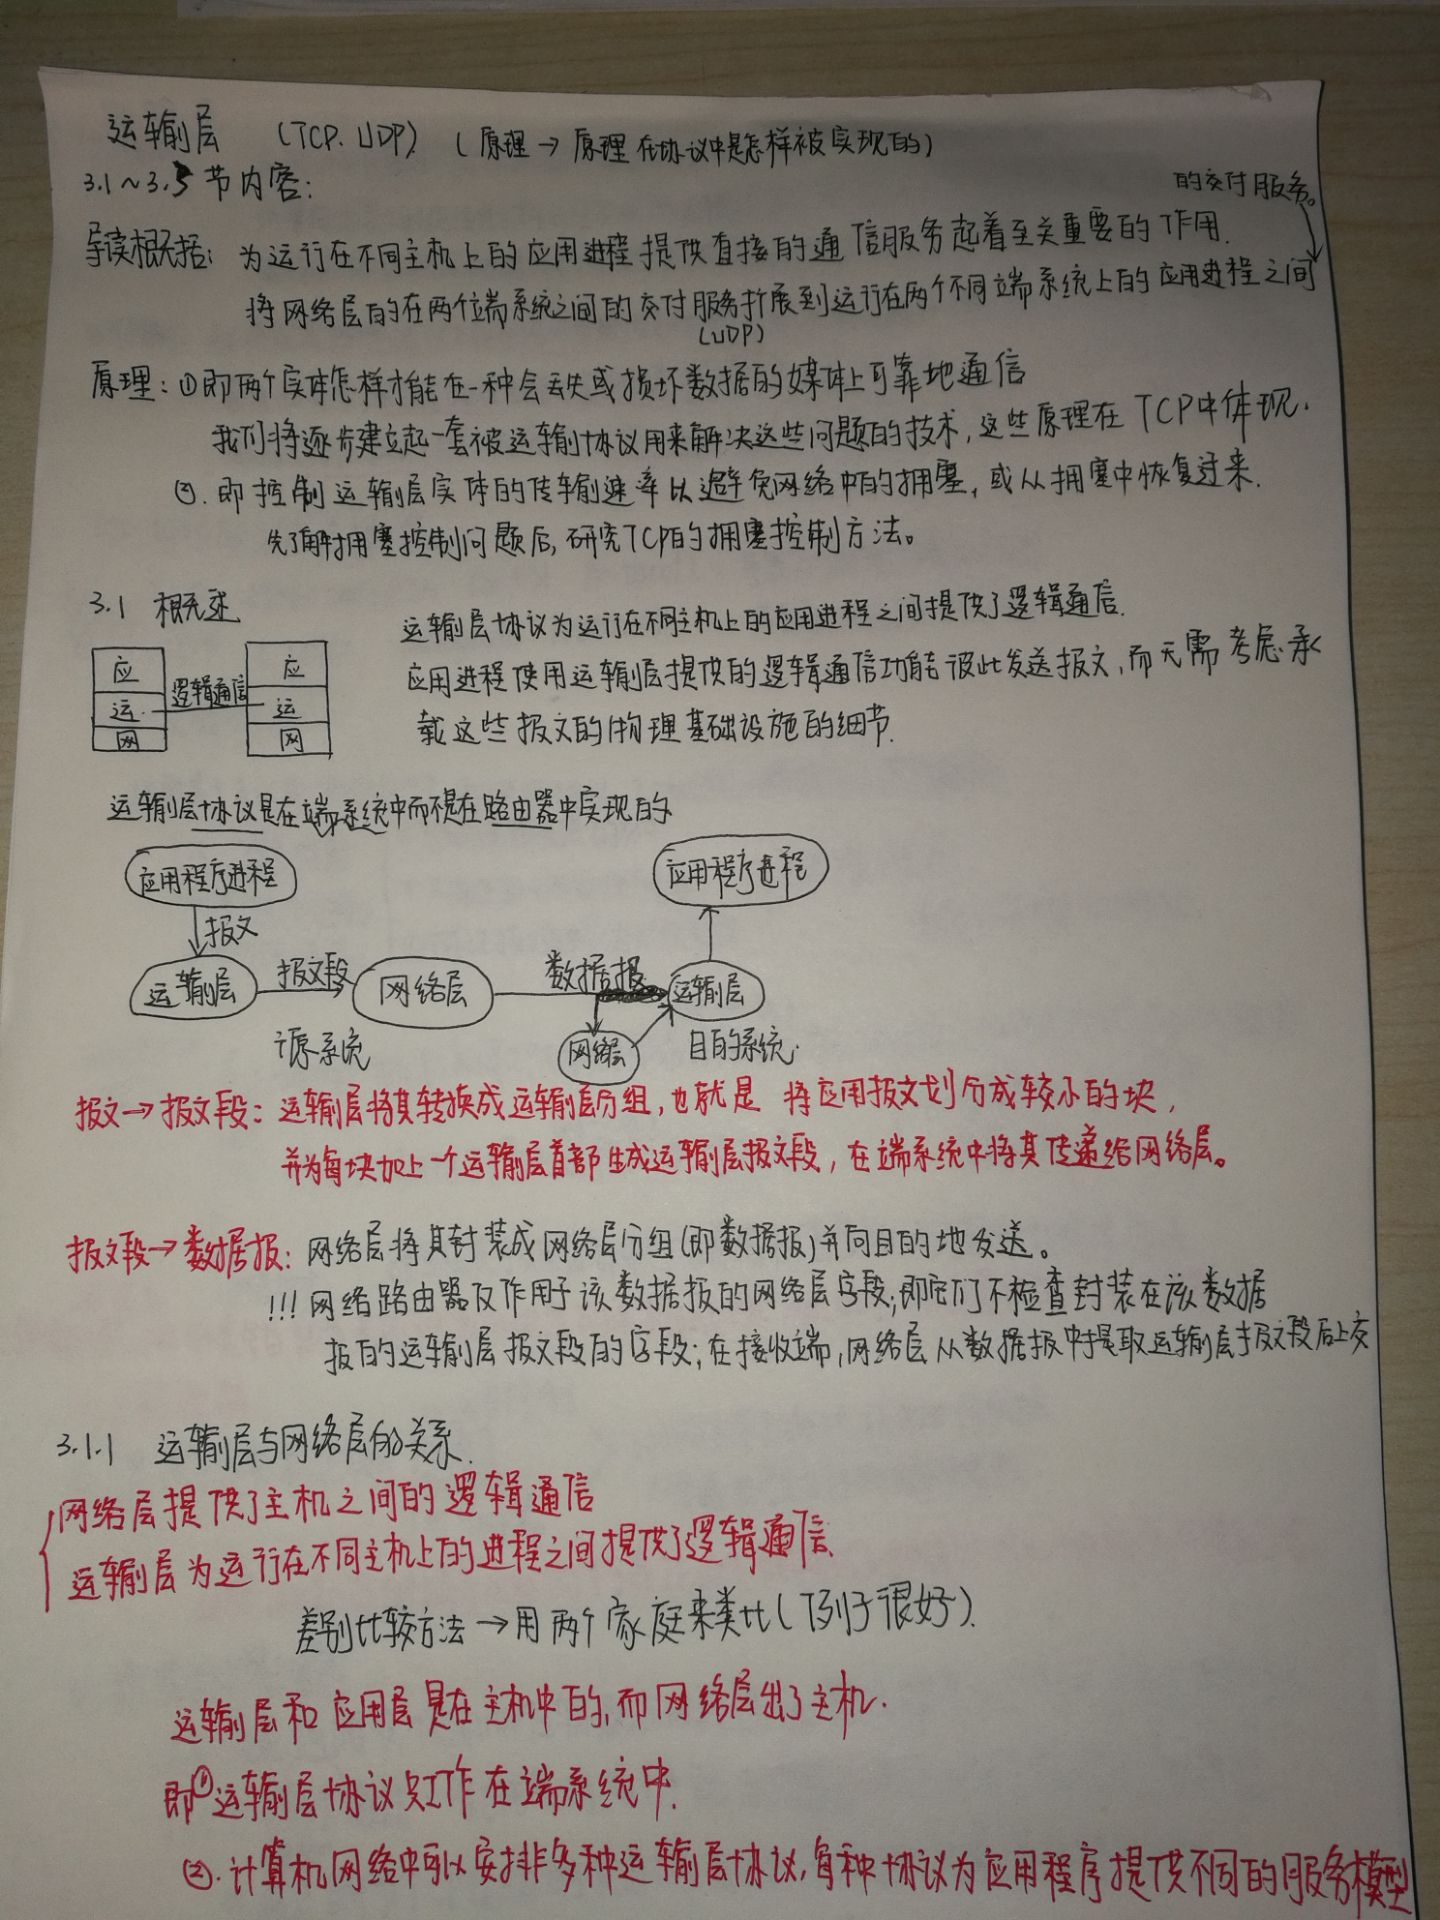 运输层 (TCP. UDP) (原理→原理在协议中是怎样被实现的)
3.1~3.5节内容:
的交付服务。
导读概括: 为运行在不同主机上的应用进程提供直接的通信服务起着至关重要的作用.
将网络层的在两个端系统之间的交付服务扩展到运行在两个不同端系统上的应用进程之间
(UDP)
原理: ①即两个实体怎样才能在一种会丢失或损坏数据的媒体上可靠地通信
我们将逐步建立起一套被运输协议用来解决这些问题的技术, 这些原理在TCP中体现.
②. 即控制运输层实体的传输速率以避免网络中的拥塞, 或从拥塞中恢复过来.
先了解拥塞控制问题后, 研究TCP的拥塞控制方法。
3.1 概述
运输层协议为运行在不同主机上的应用进程之间提供了逻辑通信.
应 逻辑通信 应
运 运
网 网
应用进程使用运输层提供的逻辑通信功能彼此发送报文, 而无需考虑承
载这些报文的物理基础设施的细节.
运输层协议是在端系统中而不是在路由器中实现的
应用程序进程 应用程序进程
报文
运输层 报文段 网络层 数据报 运输层
源系统 网络层 目的系统.
报文→报文段: 运输层将其转换成运输层分组, 也就是 将应用报文划分成较小的块,
并为每块加上一个运输层首部生成运输层报文段, 在端系统中将其传递给网络层。
报文段→数据报: 网络层将其封装成网络层分组(即数据报)并向目的地发送。
!!! 网络路由器仅作用于该数据报的网络层字段; 即它们不检查封装在该数据
报的运输层报文段的字段; 在接收端, 网络层从数据报中提取运输层报文段后上交
3.1.1 运输层与网络层的关系.
网络层提供了主机之间的逻辑通信
运输层为运行在不同主机上的进程之间提供了逻辑通信.
差别比较方法→用两个家庭来类比(例子很好).
运输层和应用层是在主机中的, 而网络层出了主机.
即①运输层协议只工作在端系统中.
②. 计算机网络中可以安排多种运输层协议, 每种协议为应用程序提供不同的服务模型